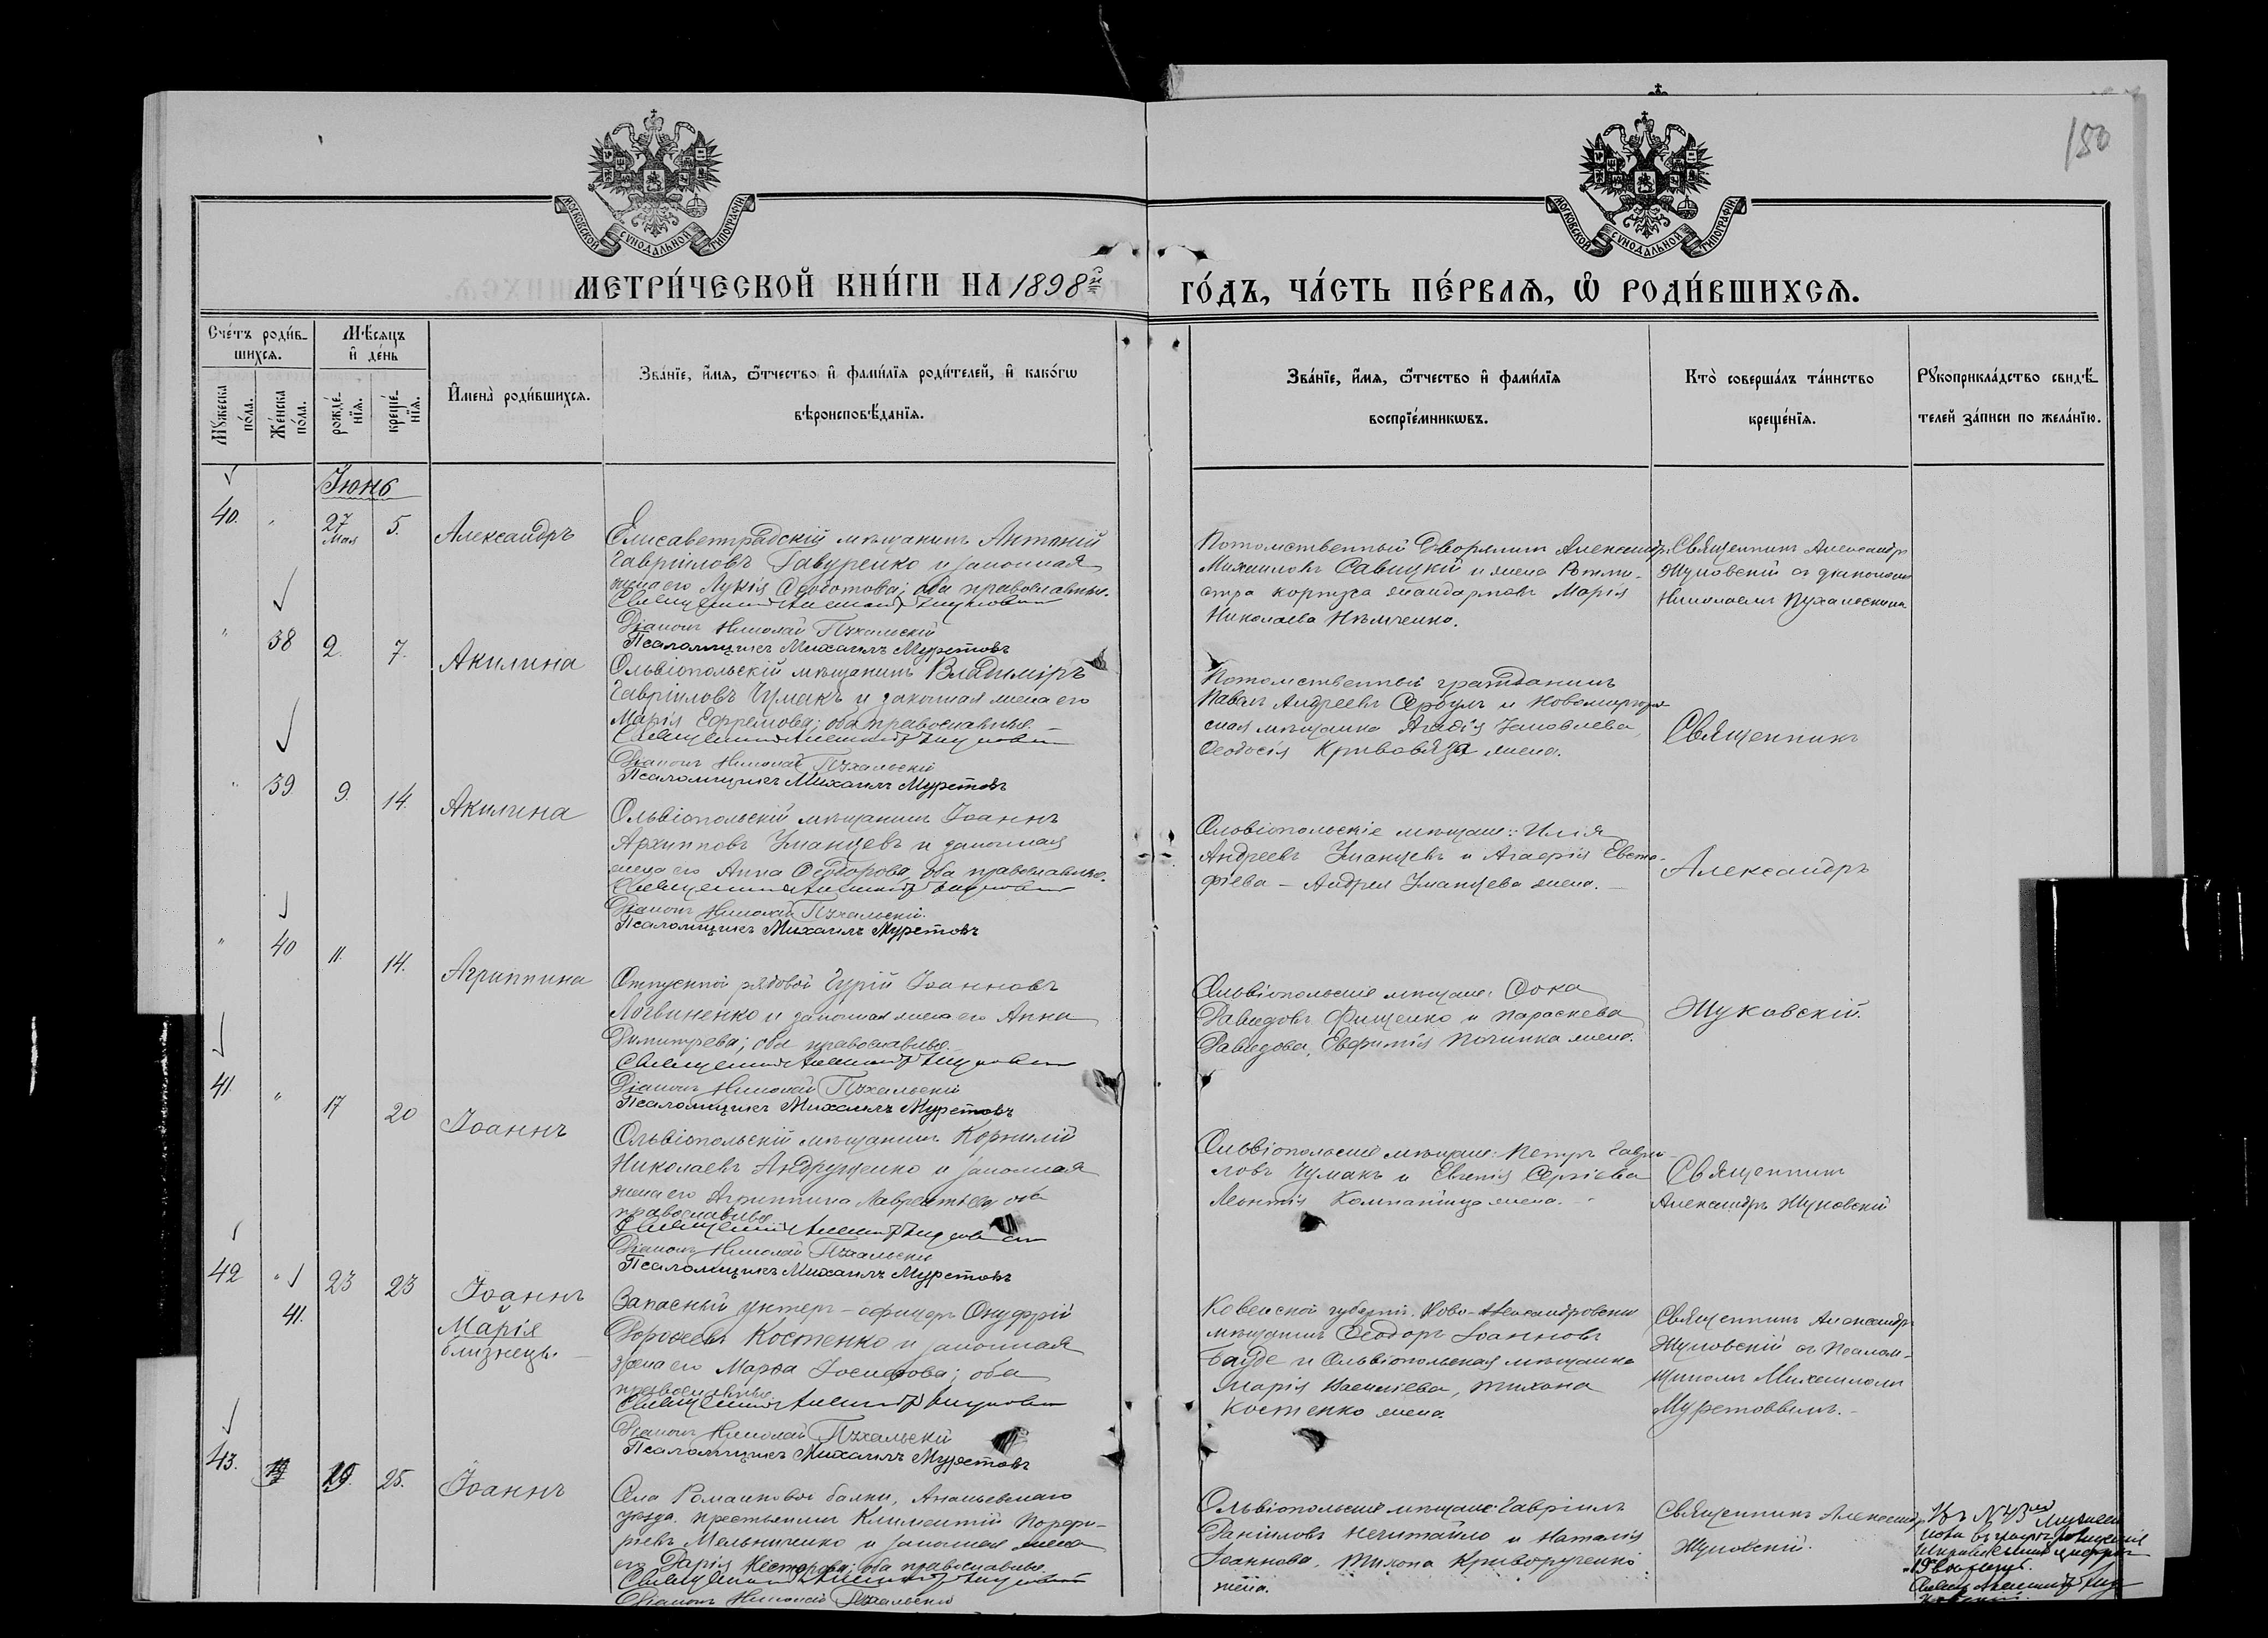 150
МОСКОВСКОЙ СѴНОДАЛЬНОЙ ТИПОГРАФІИ
МОСКОВСКОЙ СѴНОДАЛЬНОЙ ТИПОГРАФІИ
МЕТРИ́ЧЕСКОЙ КНИ́ГИ НА 1898й
ГО́ДЪ, ЧА́СТЬ ПЕ́РВАѦ, Ѡ҆ РОДИ́ВШИХСѦ.
Сче́тъ роди́в-
шихсѧ.
Мꙋ́жеска
по́ла.
Же́нска
по́ла.
Мѣ́сѧцъ
и҆ де́нь
рожде́-
нїѧ.
креще́-
нїѧ.
И҆мена̀ роди́вшихсѧ.
Зва́нїе, и҆́мѧ, ѻ҆́тчество и҆ фами́лїѧ роди́телей, и҆ како́гѡ
вѣроисповѣ́данїѧ.
Зва́нїе, и҆́мѧ, ѻ҆́тчество и҆ фами́лїѧ
воспрїе́мникѡвъ.
Кто̀ соверша́лъ та́инство
креще́нїѧ.
Рꙋкоприкла́дство свидѣ́-
телей за́писи по жела́нїю.
Іюнь
40.
27
Мая
5.
Александръ
Елисаветградскій мѣщанинъ Антоній
Гавріиловъ Гавуренко и законная
жена его Лукія Ѳедотова; оба православные.
Священникъ Александръ Жуковскій
Діаконъ Николай Пухальскій
Псаломщикъ Михаилъ Муретовъ
Потомственный Дворянинъ Александръ
Михаиловъ Савицкій и жена Ротми-
стра корпуса жандармовъ Марія
Николаева Нѣмченко.
Священникъ Александръ
Жуковскій съ діакономъ
Николаемъ Пухальскимъ
38
2.
7.
Акилина
Ольвіопольскій мѣщанинъ Владиміръ
Гавріиловъ Чумакъ и законная жена его
Марія Ефремова; оба православные.
Священникъ Александръ Жуковскій
Діаконъ Николай Пухальскій
Псаломщикъ Михаилъ Муретовъ
Потомственный гражданинъ
Павелъ Андреевъ Сербулъ и Новомиргород-
ская мѣщанка Яковлева,
Ѳеодосія Кривовяза жена.
Священникъ
39.
9.
14.
Акилина
Ольвіопольскій мѣщанинъ Іоаннъ
Архипповъ Уманцевъ и законная
жена его Анна Ѳеодорова, оба православные.
Священникъ Александръ Жуковскій
Діаконъ Николай Пухальскій.
Псаломщикъ Михаилъ Муретовъ
Ольвіопольскіе мѣщане: Илія
Андреевъ Уманцевъ и Евста-
фіева – Андрея Уманцева жена.
Александръ
40
11.
14.
Агриппина
Отпускной рядовой Гурій Іоанновъ
Логвиненко и законная жена его Анна
Димитріева; оба православные.
Священникъ Александръ Жуковскій
Діаконъ Николай Пухальскій
Псаломщикъ Михаилъ Муретовъ
Ольвіопольскіе мѣщане: Ѳока
Давидовъ Фищенко и Параскева
Давидова, Евфимія Починка жена.
Жуковскій.
41.
17
20
Іоаннъ
Ольвіопольскій мѣщанинъ Корнилій
Николаевъ Андрущенко и законная
жена его Агриппина Лаврентьева оба
православные
Священникъ Александръ Жуковскій
Діаконъ Николай Пухальскій
Псаломщикъ Михаилъ Муретовъ
Ольвіопольскіе мѣщане: Петръ Гаврі-
ловъ Чумакъ и Евгенія Сергіева
Леонтія Компанійца жена.
Священникъ
Александръ Жуковскій
42
41.
23
23
Іоаннъ
Марія
близнецы.
Запасный унтеръ-офицеръ Онуфрій
Дороѳеевъ Костенко и законная
жена его Марѳа Іосифова; оба
православные.
Священникъ Александръ Жуковскій
Діаконъ Николай Пухальскій
Псаломщикъ Михаилъ Муретовъ
Ковенской губерніи Ново-Александровскій
мѣщанинъ Ѳеодоръ Іоанновъ
Бауде и Ольвіопольская мѣщанка
Марія Василіева, Тихона
Костенко жена.
Священникъ Александръ
Жуковскій съ Псалом-
щикомъ Михаиломъ
Муретовымъ.
43.
19.
25.
Іоаннъ
Села Романковой балки, Ананьевскаго
уѣзда крестьянинъ Климентій Порфи-
ріевъ Мельниченко и законная жена
его Дарія Несторова; оба православные.
Священникъ Александръ Жуковскій
Діаконъ Николай Пухальскій
Ольвіопольскіе мѣщане: Гавріилъ
Даніиловъ Нечитайло и Наталія
Іоаннова, Тихона Криворученко
жена.
Священникъ Александръ
Жуковскій.
Въ №43 мужеска
пола въ графѣ